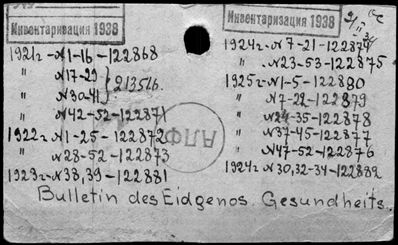 Инвентаризация 1938
Инвентаризация 1938
1921г-N1-16-122868
" N17-29 } 213516.
" N30-41
" N42-52-122871
1922г-N1-25-122872
" N28-52-122873
1923г-N38,39-122881
1924г-N7-21-122874
" N23-53-122875
1925г-N1-5-122880
" N7-22-122879
" N24-35-122878
" N37-45-122877
" N47-52-122876
1924г-N30,32-34-122882
АЛФ
Bulletin des Eidgenos. Gesundheits.